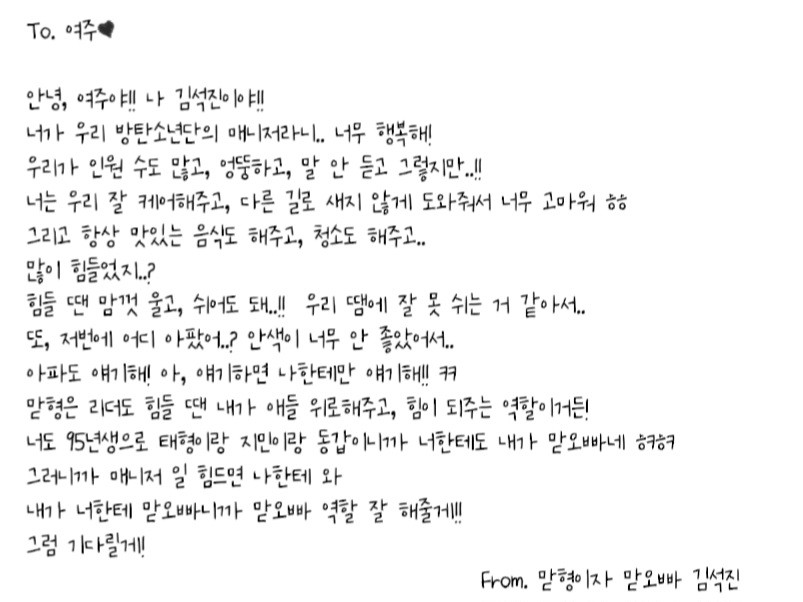 To. 여주♥
안녕, 여주야!! 나 김석진이야!!
너가 우리 방탄소년단의 매니저라니.. 너무 행복해!
우리가 인원 수도 많고, 엉뚱하고, 말 안 듣고 그렇지만..!!
너는 우리 잘 케어해주고, 다른 길로 새지 않게 도와줘서 너무 고마워 ㅎㅎ
그리고 항상 맛있는 음식도 해주고, 청소도 해주고..
많이 힘들었지..?
힘들 땐 맘껏 울고, 쉬어도 돼..!! 우리 땜에 잘 못 쉬는 거 같아서..
또, 저번에 어디 아팠어..? 안색이 너무 안 좋았어서..
아파도 얘기해! 아, 얘기하면 나한테만 얘기해!! ㅋㅋ
맏형은 리더도 힘들 땐 내가 애들 위로해주고, 힘이 되주는 역할이거든!
너도 95년생으로 태형이랑 지민이랑 동갑이니까 너한테도 내가 맏오빠네 ㅎㅋㅎㅋ
그러니까 매니저 일 힘드면 나한테 와
내가 너한테 맏오빠니까 맏오빠 역할 잘 해줄게!!!
그럼 기다릴게!
From. 맏형이자 맏오빠 김석진